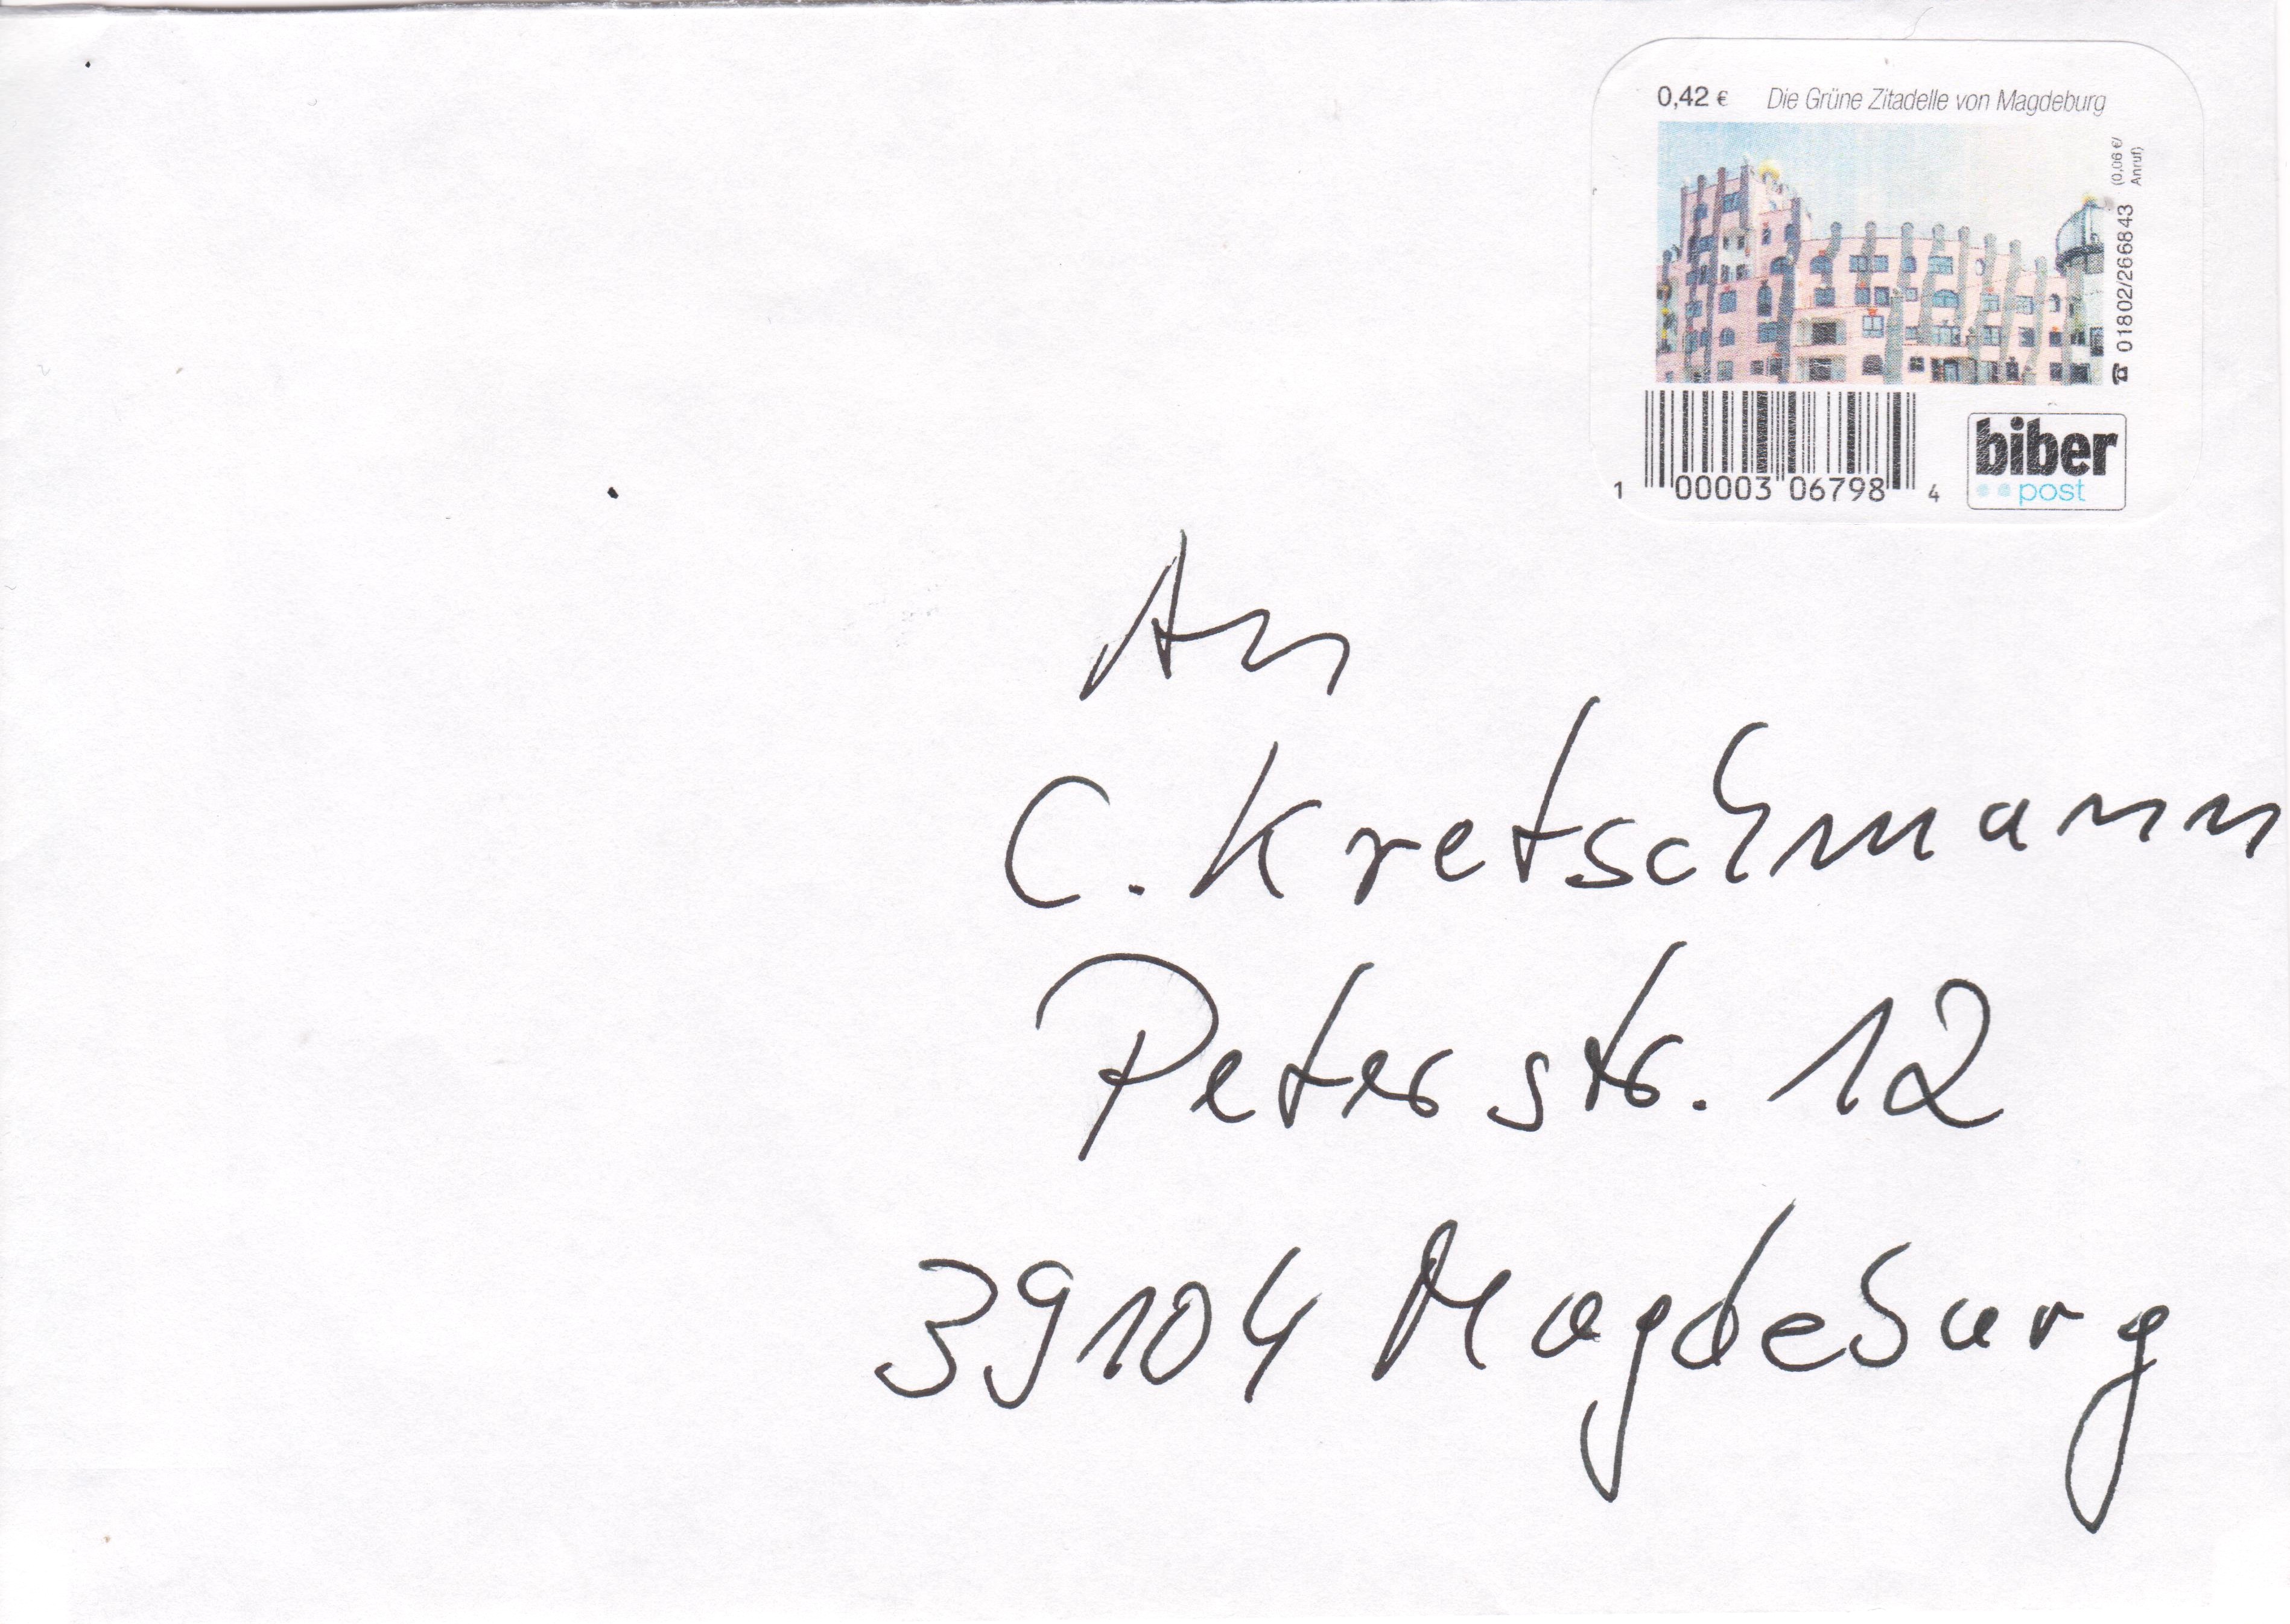 0,42 € Die Grüne Zitadelle von Magdeburg
☎ 01802/266843 (0,06 €/
Anruf)
1 00003 06798 4
biber
post
An
C. Kretschmann
Peterstr. 12
39104 Magdeburg